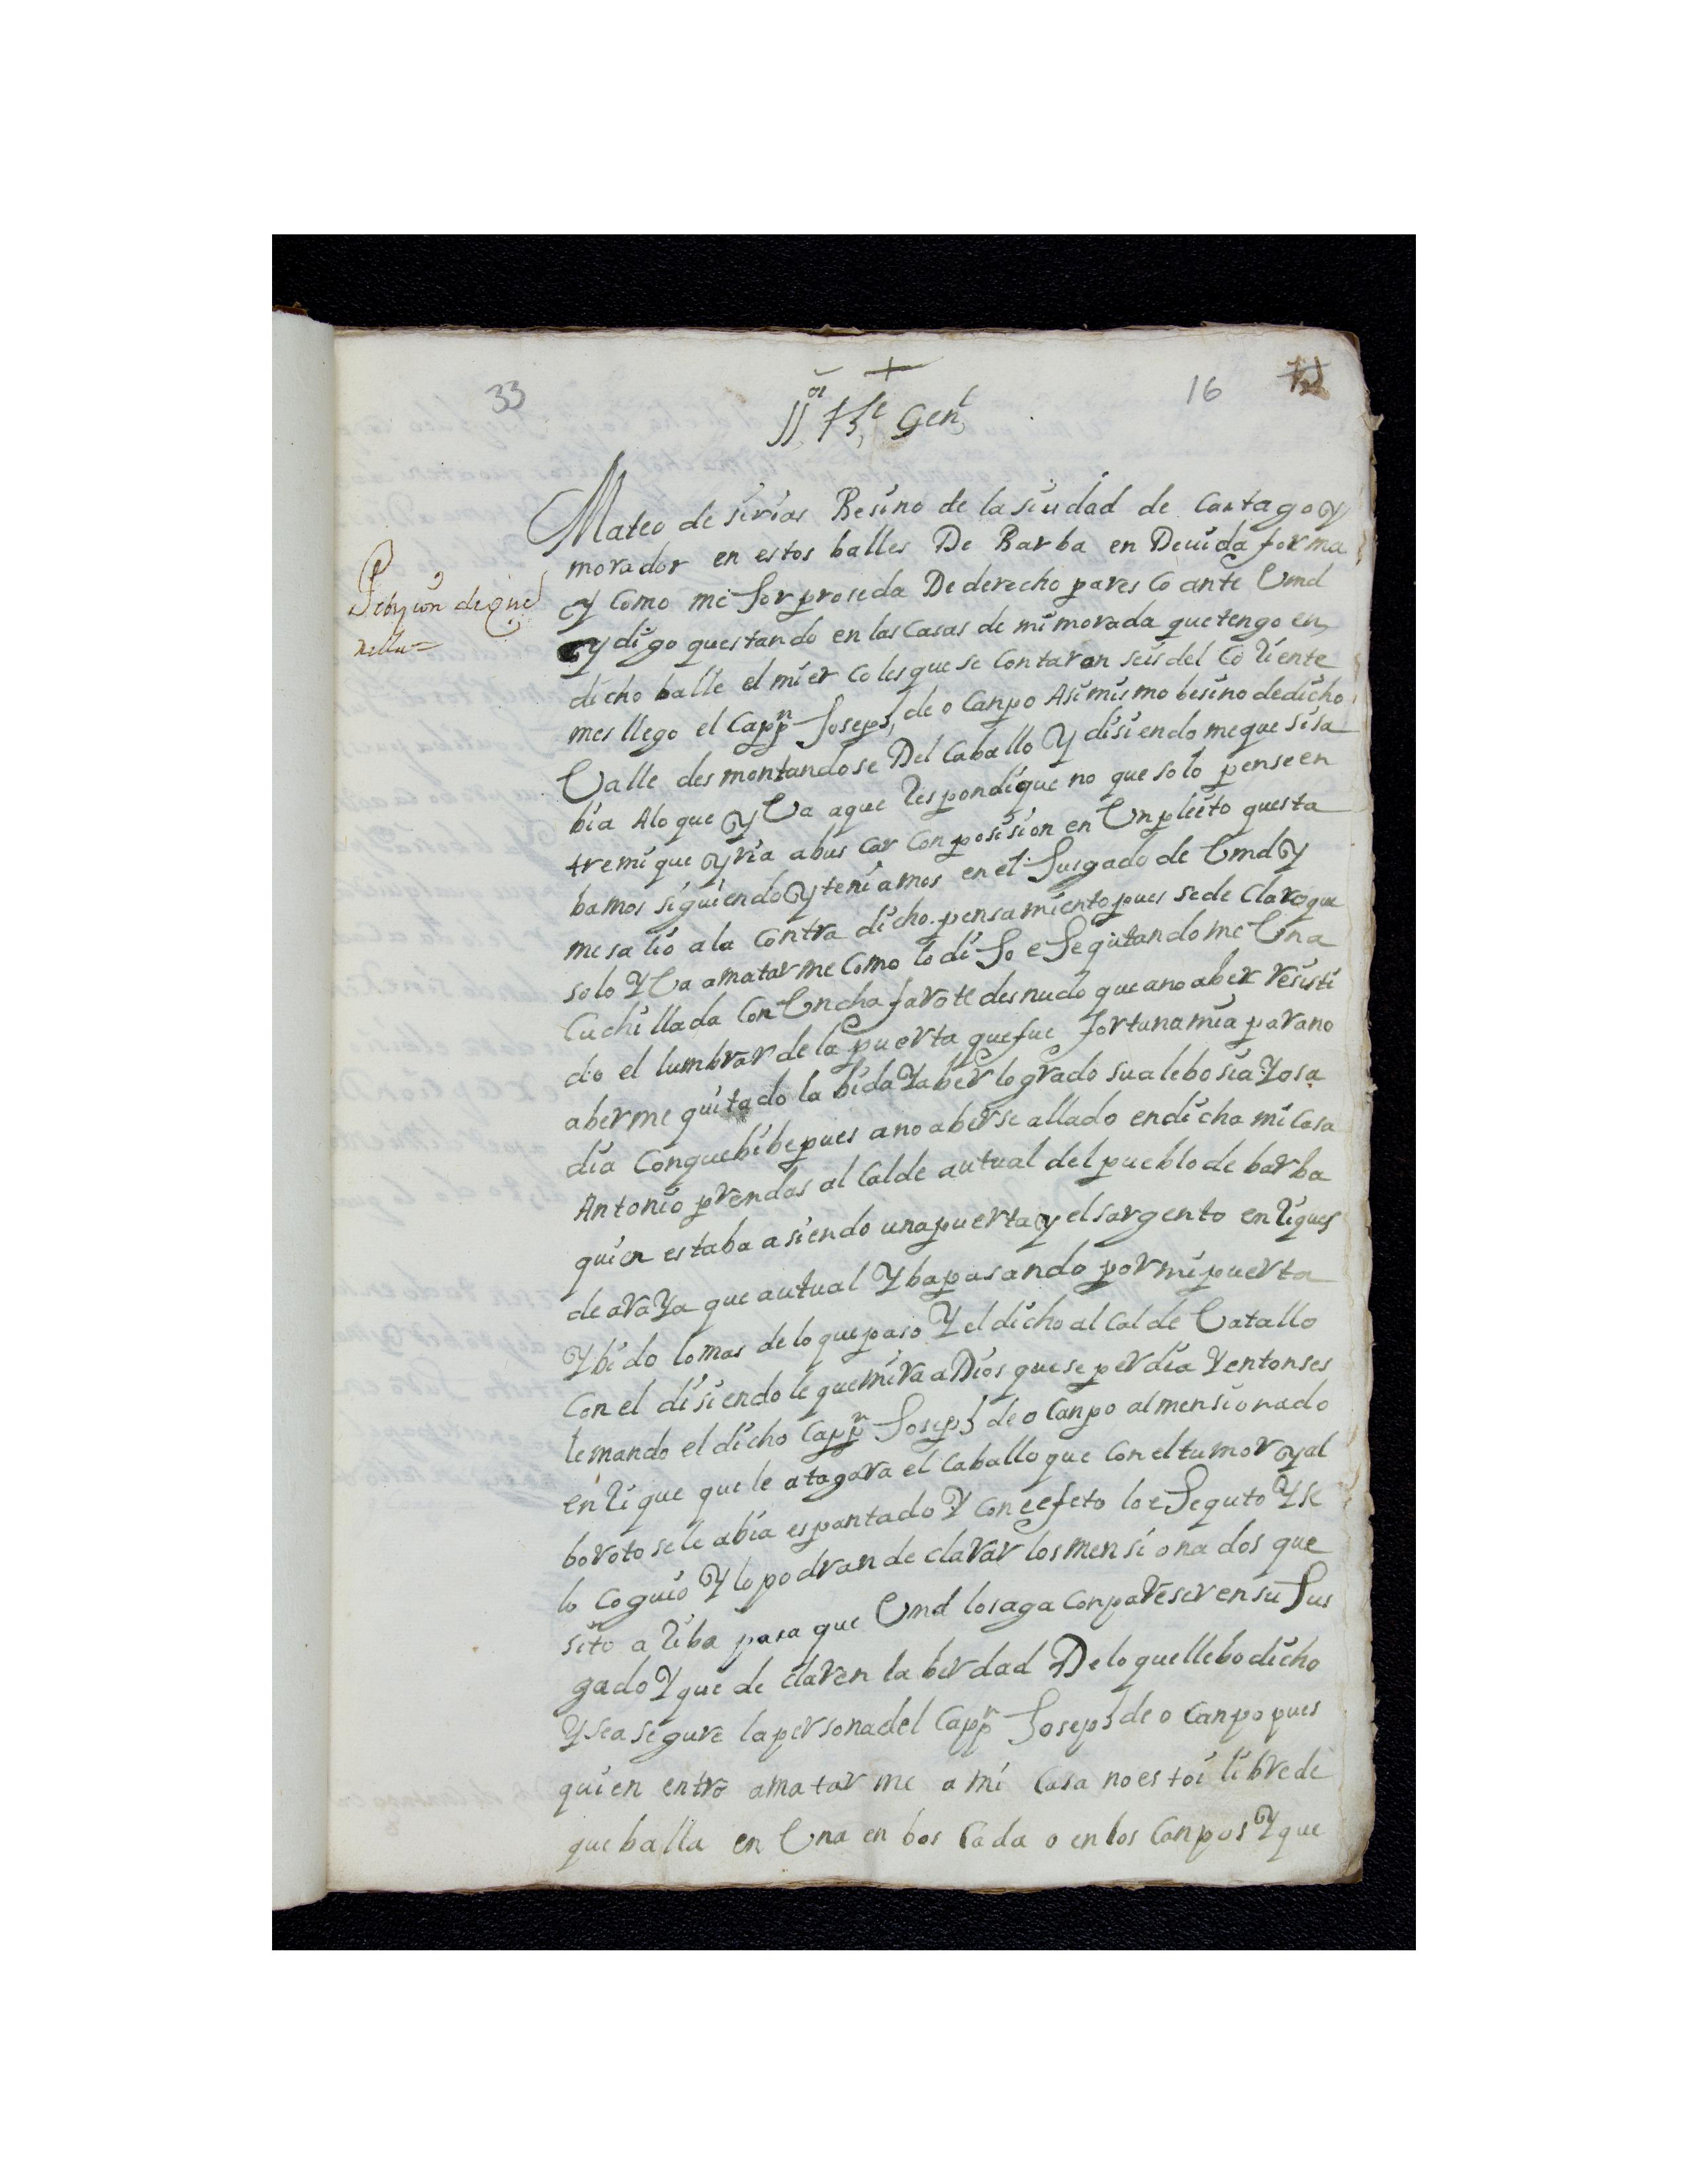 33
16
+
Sr Tte Genl
Mateo de sirias Besino de la siudad de Cartago y
Petizion de que
rella =
morador en estos balles De Barba en Deuida forma
y Como mejor proseda De derecho paresco ante Umd
y digo questando en las Casas de mi morada que tengo en
dicho balle el mierColes que se Contaron seis del Coriente
mes llego el Cappn Joseph de oCanpo Asimismo besino de dicho
Valle desmontandose Del Caballo Y disiendome que si sa
bia Alo que yVa a que respondi que no que solo pense en
tre mi que yria a busCar Conposision en Un pleito questa
bamos siguiendo y teniamos en el Jusgado de Umd y
me salio a la Contra dicho pensamiento pues se deClaro que
solo YVa a matarme Como lo diJo eJegutandome Una
Cuchillada Con Un chafarote desnudo que a no aber resisti
do el lumbrar de la puerta que fue fortuna mia para no
aberme quitado la bida Y aber logrado su alebosia Y osa
dia Con que bibe pues a no aberse allado en dicha mi Casa
Antonio prendas alCalde autual del pueblo de barba
quien estaba asiendo una puerta y el sargento enriques
de araYa que autual Yba pasando por mi puerta
Y bido lo mas de lo que paso Y el dicho alCalde Vatallo
Con el disiendole que mira a Dios que se perdia Y entonses
le mando el dicho Cappn Joseph de oCanpo al mensionado
enrique que le atagara el Caballo que Con el tumor y al
boroto se le abia espantado Y Con eefeto lo eJeguto Y se
lo Coguio Y lo podran deClarar los mensionados que
sito ariba para que Umd los aga Conpareser en su Jus
gado Y que deClaren la berdad De lo que llebo dicho
Y se asegure la persona del Cappn Joseph de oCanpo pues
quien entro a matarme a mi Casa no estoi libre de
que balla en Una enbosCada o en los Canpos Y que